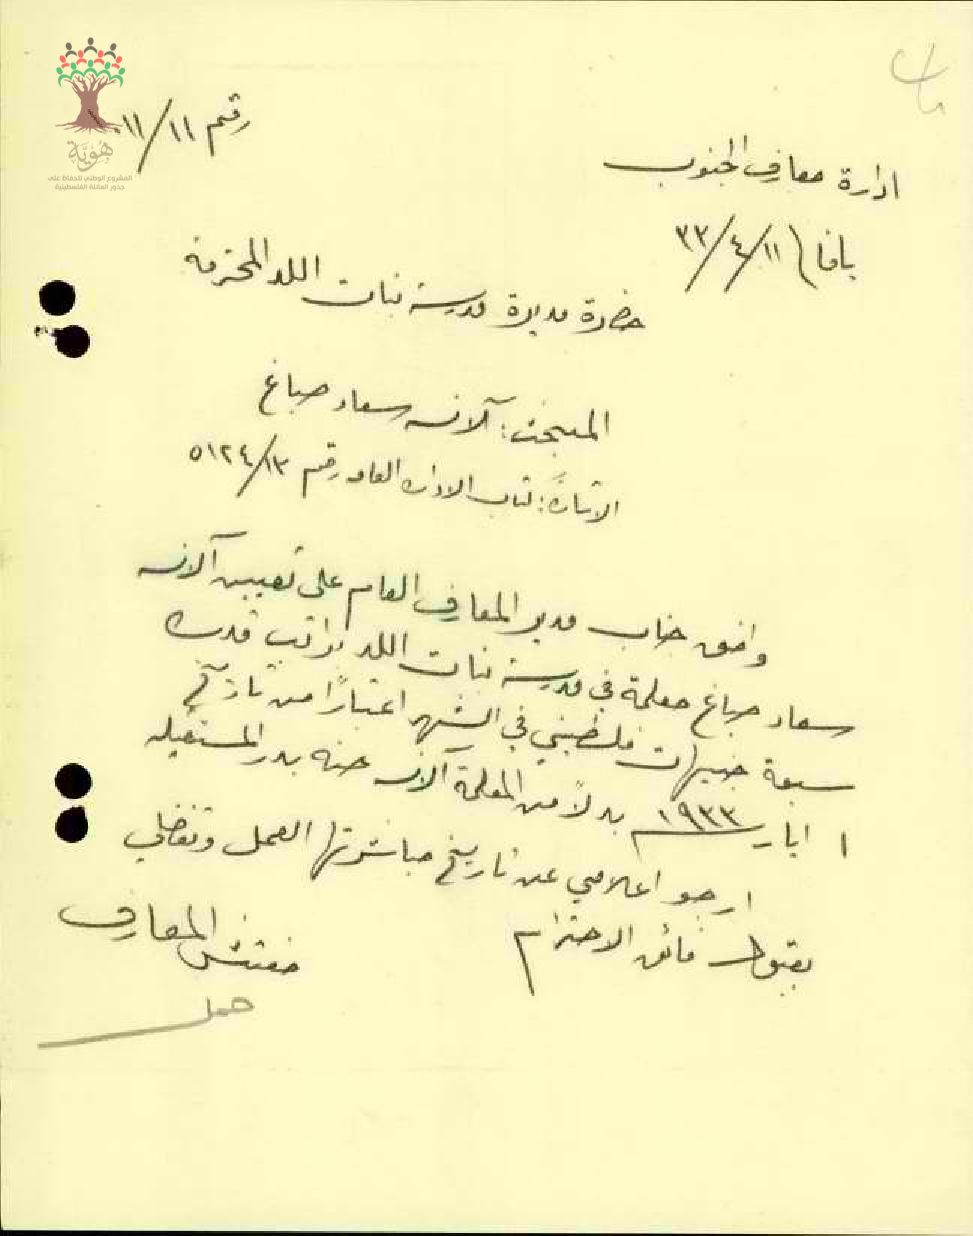 رقم ١١/١١
هُويَّة
المشروع الوطني للحفاظ على
جذور العائلة الفلسطينية
ادارة معارف الجنوب
يافا ١١/٤/٣٣
حضرة مديرة مدرسة بنات اللد المحترمة
المبحث: آلانسه سعاد صباغ
الاشارة: كتاب الاداره العامه رقم ٥١٢٤/١٣
وافق جناب مدير المعارف العام على تعيين آلانسه
سعاد صباغ معلمة في مدرسة بنات اللد براتب قدره
سبعة جنيهات فلسطيني في الشهر اعتبارًا من تاريخ
١ ايار ١٩٣٣ بدلاً من المعلمة آلانسه حنه بدر المستقيله
ارجو اعلامي عن تاريخ مباشرتها العمل وتفضلي
بقبول فائق الاحترام
مفتش المعارف